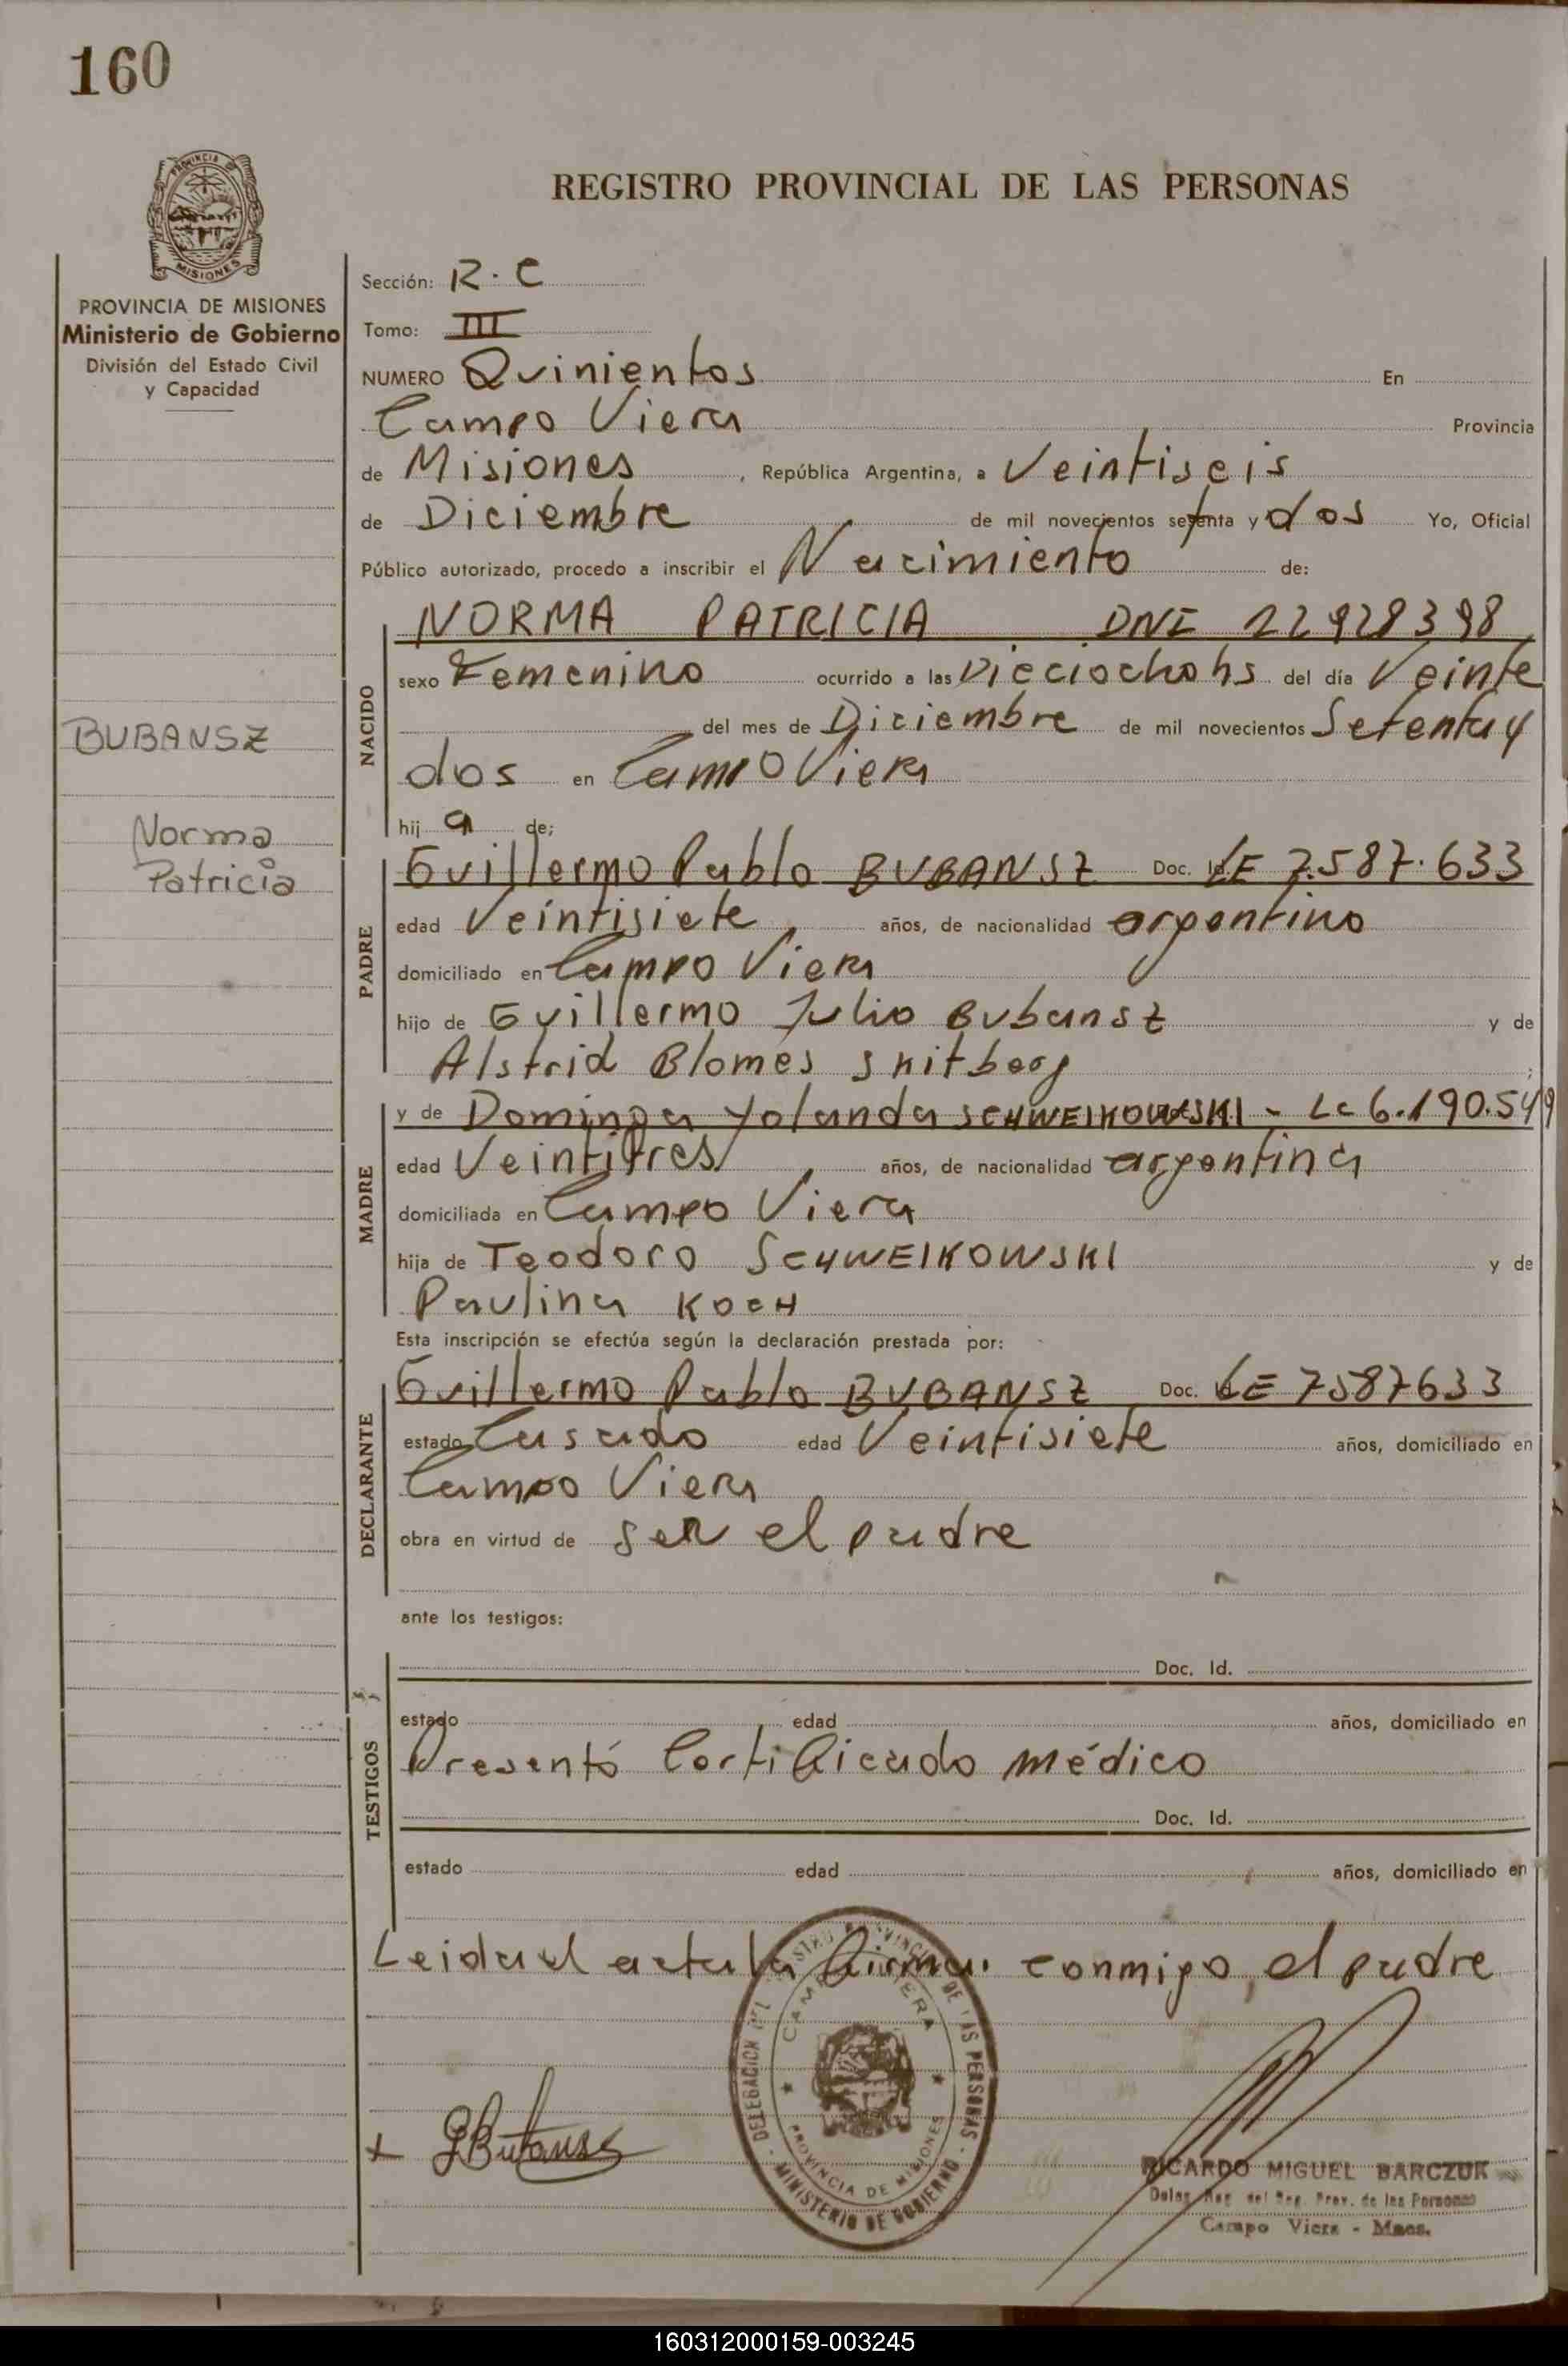 160
PROVINCIA DE
MISIONES
REGISTRO PROVINCIAL DE LAS PERSONAS
PROVINCIA DE MISIONES
Ministerio de Gobierno
División del Estado Civil
y Capacidad
BUBANSZ
Norma
Patricia
Sección: R.C
Tomo: III
NUMERO Quinientos En
Campo Viera Provincia
de Misiones, República Argentina, a Veintiseis
de Diciembre de mil novecientos setenta y dos Yo, Oficial
Público autorizado, procedo a inscribir el Nacimiento de:
NACIDO
NORMA PATRICIA DNI 22928398
sexo Femenino ocurrido a las Dieciocho hs del día Veinte
del mes de Diciembre de mil novecientos Setenta y
dos en Campo Viera
hij a de;
PADRE
Guillermo Pablo BUBANSZ Doc. LE 7.587.633
edad Veintisiete años, de nacionalidad argentino
domiciliado en Campo Viera
hijo de Guillermo Julio Bubansz y de
Alstrid Blomes Snitberg;
MADRE
y de Dominga Yolanda SCHWEIKOWSKI - LC 6.190.549
edad Veintitres, años, de nacionalidad argentina
domiciliada en Campo Viera
hija de Teodoro SCHWEIKOWSKI y de
Paulina KOCH
Esta inscripción se efectúa según la declaración prestada por:
DECLARANTE
Guillermo Pablo BUBANSZ Doc. LE 7587633
estado Casado edad Veintisiete años, domiciliado en
Campo Viera
obra en virtud de ser el padre
ante los testigos:
TESTIGOS
Doc. Id.
estado edad años, domiciliado en
Presentó Certificado médico
Doc. Id.
estado edad años, domiciliado en
Leida el acta la firma conmigo, el padre
DELEGACION DEL REGISTRO PROVINCIAL DE LAS PERSONAS - MINISTERIO DE GOBIERNO -
CAMPO VIERA
PROVINCIA DE MISIONES
x GBubansz
RICARDO MIGUEL BARCZUK
Deleg. Reg. del Reg. Prov. de las Personas
Campo Viera - Mnes.
160312000159-003245